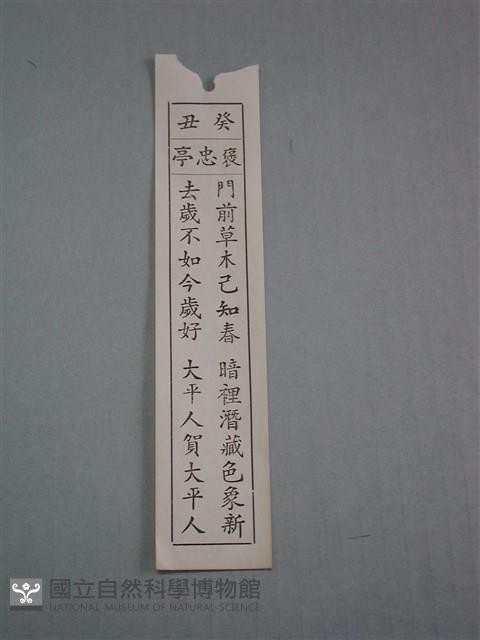 癸丑
褒忠亭
門前草木己知春 暗裡潛藏色象新
去歲不如今歲好 大平人賀大平人
國立自然科學博物館
NATIONAL MUSEUM OF NATURAL SCIENCE